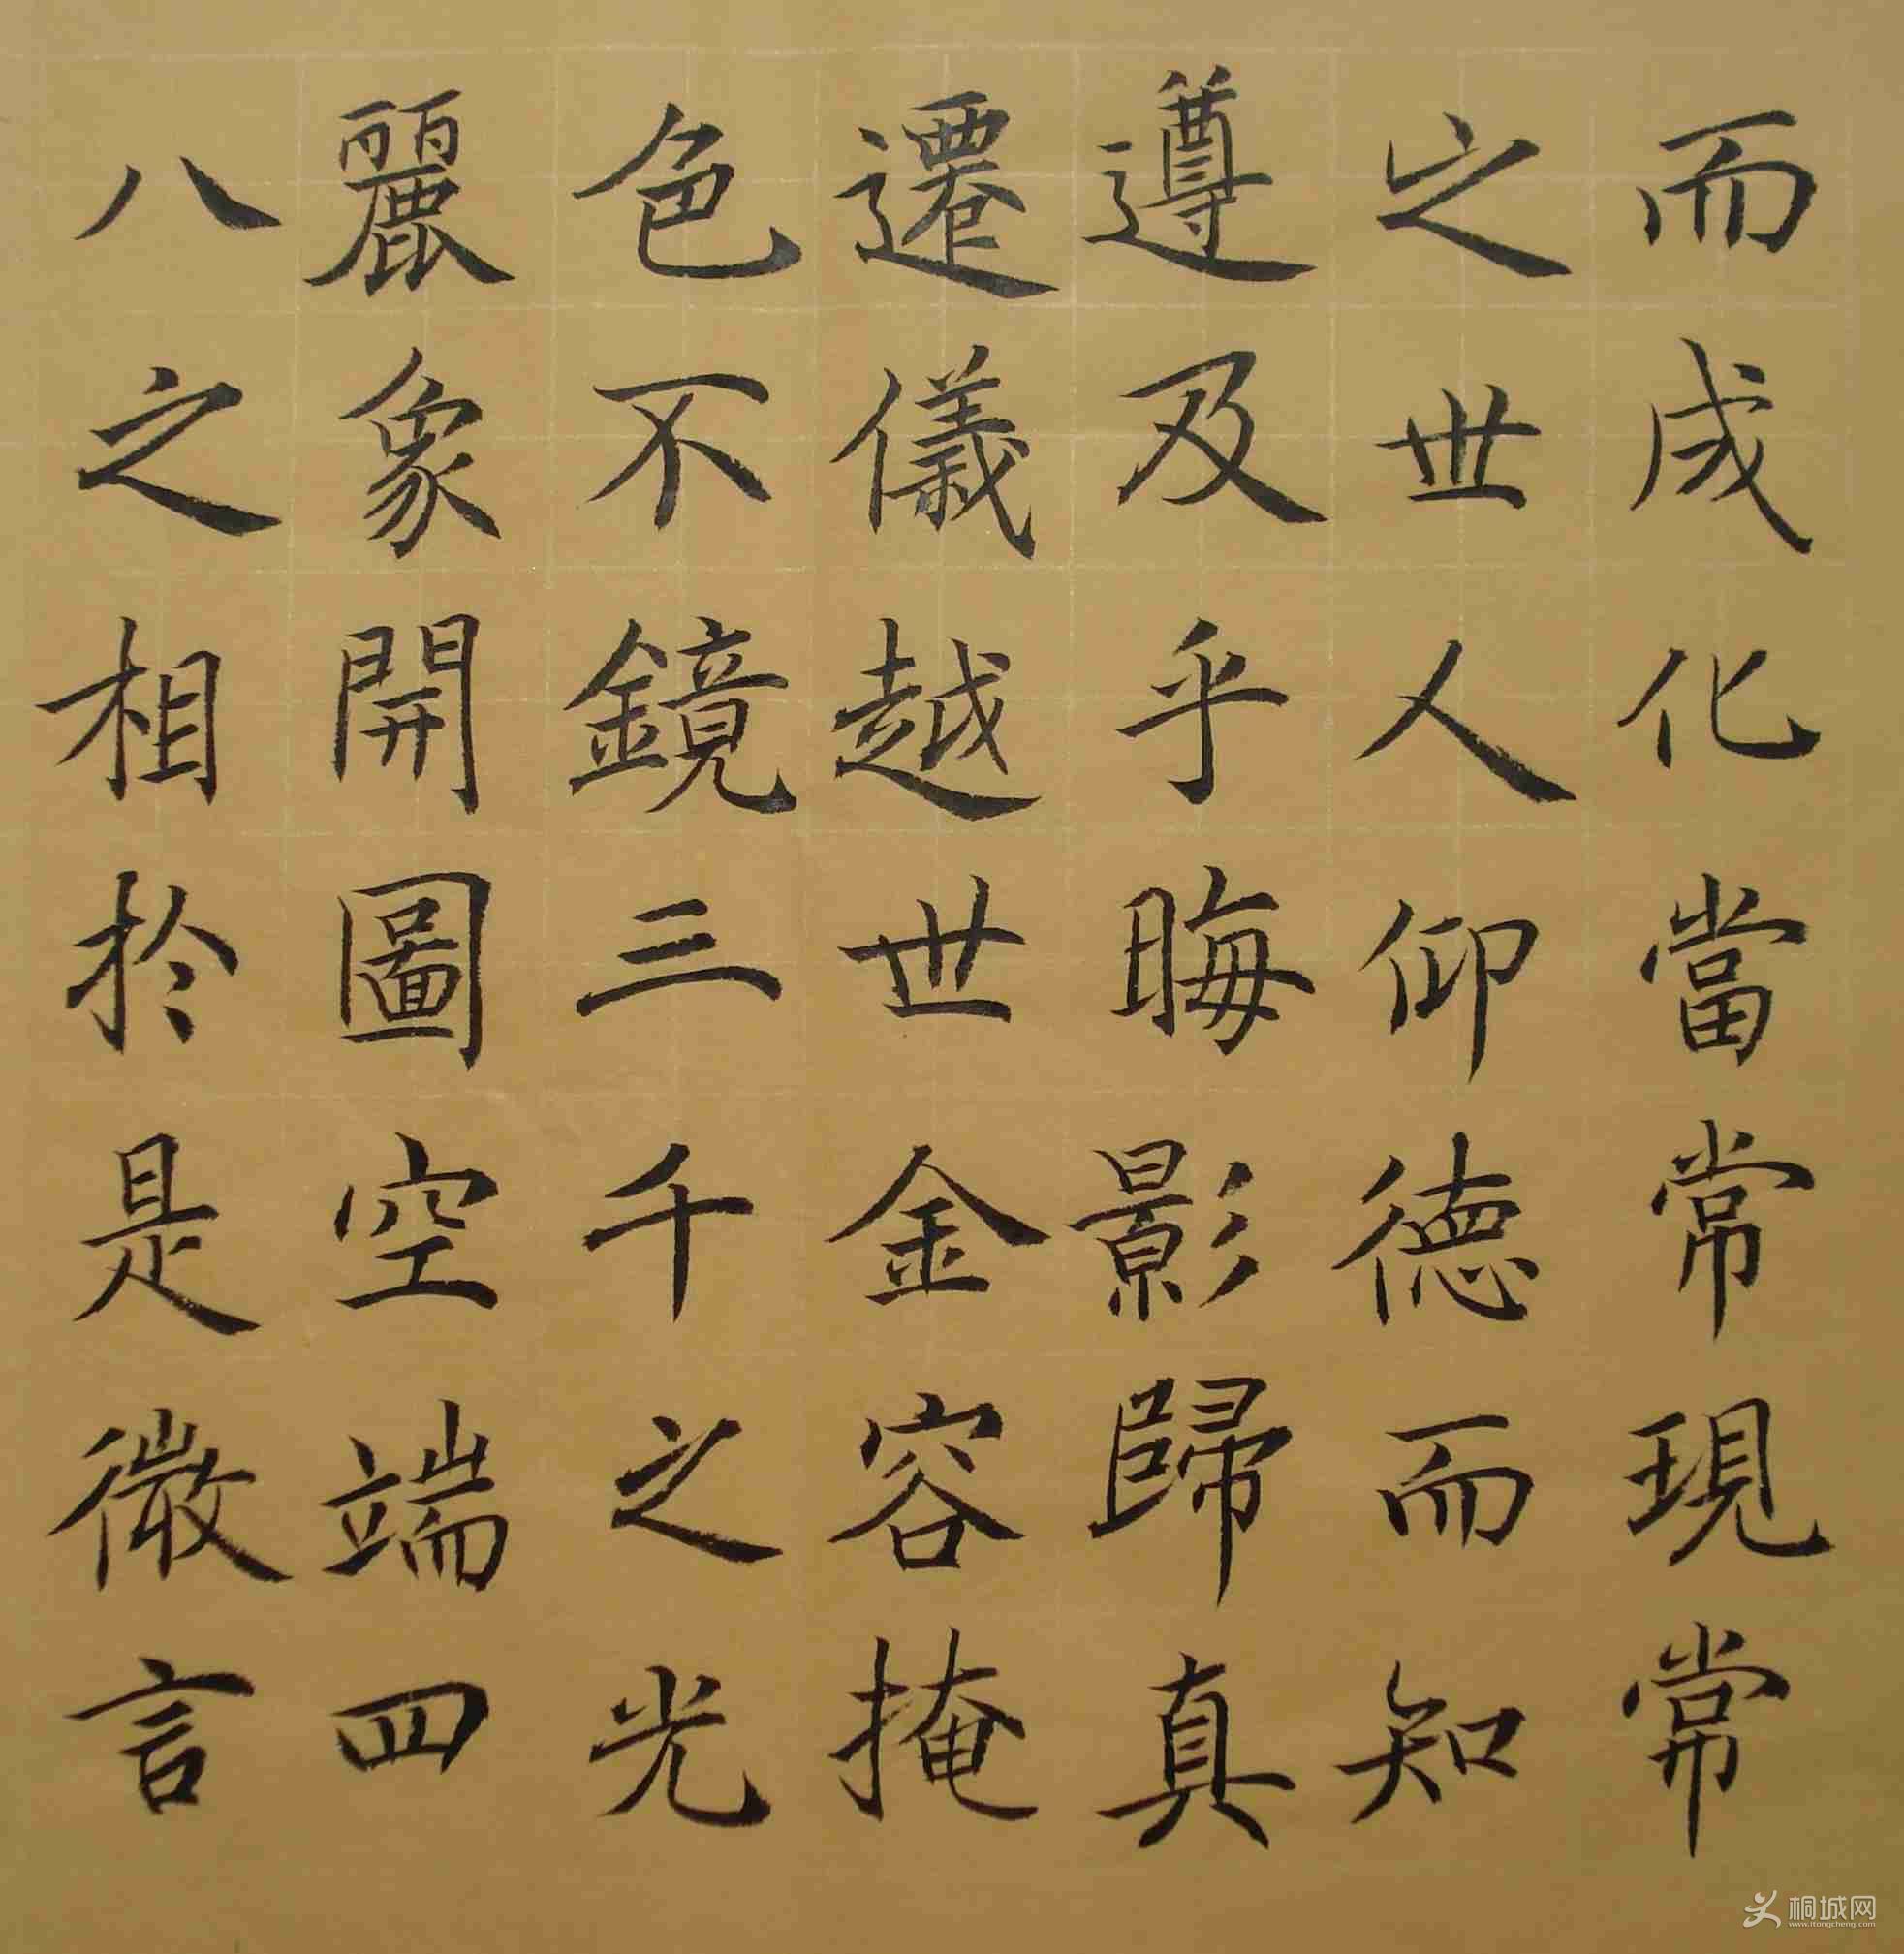 而成化當常現常
之世人仰德而知
遵及乎晦影歸真
遷儀越世金容掩
色不鏡三千之光
麗象開圖空端四
八之相於是微言
桐城网
www.itongcheng.com